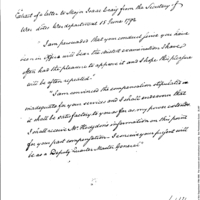 Extract of a letter to Major Isaac Craig from the Secretary of
War dated War department 15 June 1794
"I am persuaded that your conduct since you have
been in office will bear the strictest examination. I have
often had the pleasure to approve it and I hope this pleasure
will be often repeated."
"I am convinced the compensation stipulated is
inadequate for your services and I shall endeavour that
it shall be satisfactory to you as far as my power extends
I shall receive Mr Hodgdon's information on this point
for your past compensation. In coming your project will
be as a Deputy Quarter Master General"